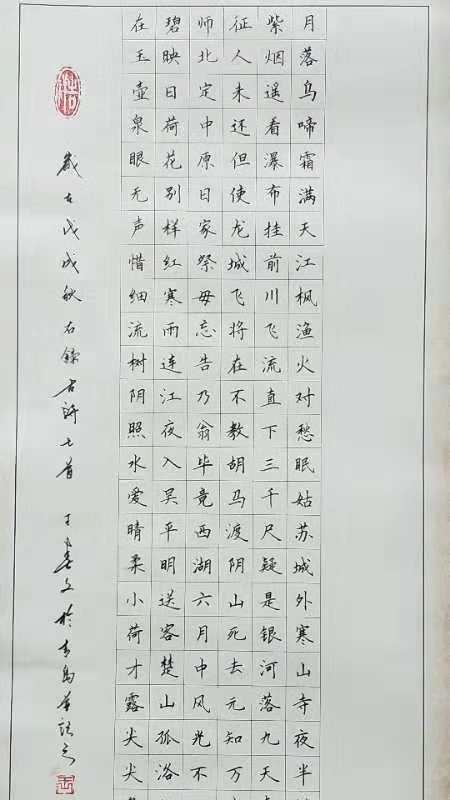 月落乌啼霜满天江枫渔火对愁眠姑苏城外寒山寺夜半
紫烟遥看瀑布挂前川飞流直下三千尺疑是银河落九天
征人未还但使龙城飞将在不教胡马渡阴山死去元知万
师北定中原日家祭毋忘告乃翁毕竟西湖六月中风光不
碧映日荷花别样红寒雨连江夜入吴平明送客楚山孤洛
在玉壶泉眼无声惜细流树阴照水爱晴柔小荷才露尖尖
歲在戊戌秋右錄古詩七首 於青島